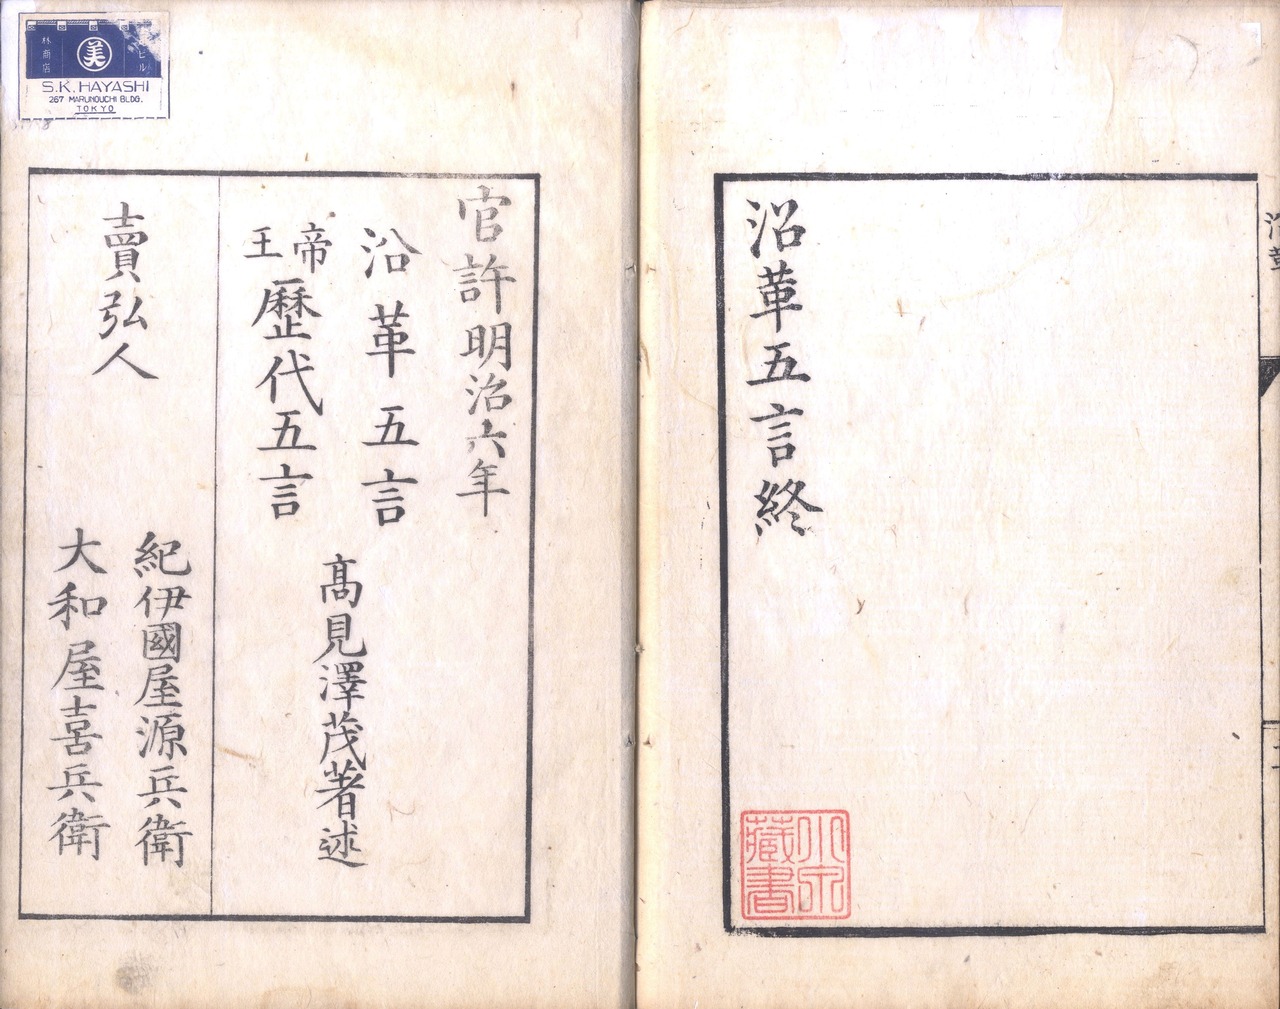 沿革五言終
沿革
藏書
官許明治六年
沿革五言
帝王歷代五言
髙見澤茂著述
賣弘人
紀伊國屋源兵衛
大和屋喜兵衛
美
林商店
ビル
S.K. HAYASHI
267 MARUNOUCHI BLDG.
TOKYO